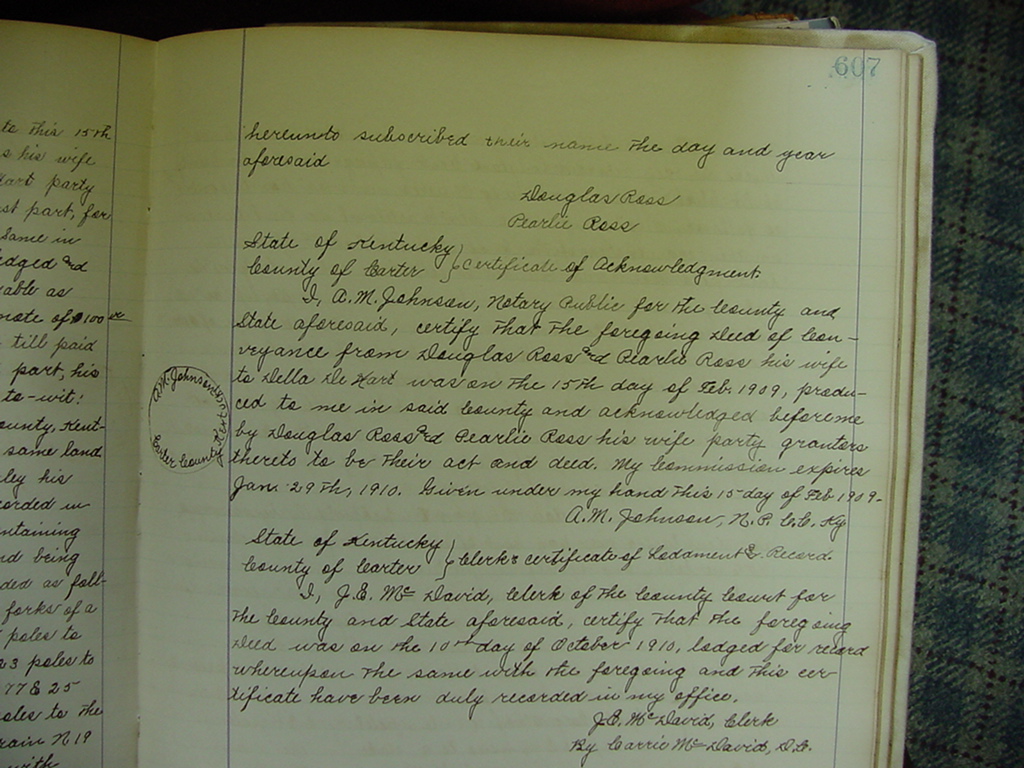 607
te this 15th
s his wife
Hart party
st part, for
same in
edged and
able as
note of $100 00
till paid
part, his
to-wit:
ounty, Kent-
same land
ley his
corded in
ntaining
nd being
ded as foll-
forks of a
poles to
23 poles to
77 E 25
oles to the
rain N 19
with
hereunto subscribed their name the day and year
aforesaid
Douglas Ross
Pearlie Ross
State of Kentucky
County of Carter } Certificate of Acknowledgment.
I, A.M. Johnson, Notary Public for the County and
State aforesaid, certify that the foregoing Deed of Con-
veyance from Douglas Ross and Pearlie Ross his wife
to Della De Hart was on the 15th day of Feb. 1909, produ-
ced to me in said County and acknowledged before me
by Douglas Ross and Pearlie Ross his wife party grantors
thereto to be their act and deed. My Commission expires
Jan. 29th, 1910. Given under my hand this 15 day of Feb 1909-
A.M. Johnson, N.P.C.C. Ky
A.M. Johnson
Carter County
State of Kentucky
County of Carter } Clerk's certificate of Lodgment & Record.
I, J.E. McDavid, Clerk of the County Court for
the County and State aforesaid, certify that the foregoing
Deed was on the 10th day of October 1910, lodged for record
whereupon the same with the foregoing and this cer-
tificate have been duly recorded in my office.
J.E. McDavid, Clerk
By Carrie McDavid, D.C.